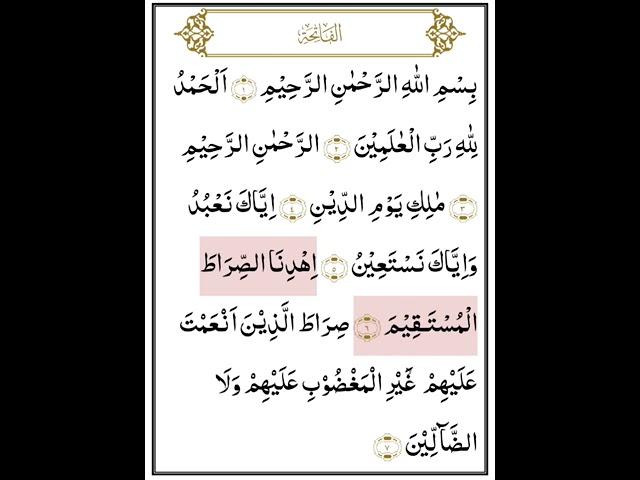 الفَاتِحَة
بِسْمِ اللّٰهِ الرَّحْمٰنِ الرَّحِيْمِ ١ اَلْحَمْدُ
لِلّٰهِ رَبِّ الْعٰلَمِيْنَ ٢ الرَّحْمٰنِ الرَّحِيْمِ
٣ مٰلِكِ يَوْمِ الدِّيْنِ ٤ اِيَّاكَ نَعْبُدُ
وَاِيَّاكَ نَسْتَعِيْنُ ٥ اِهْدِنَا الصِّرَاطَ
الْمُسْتَقِيْمَ ٦ صِرَاطَ الَّذِيْنَ اَنْعَمْتَ
عَلَيْهِمْ غَيْرِ الْمَغْضُوْبِ عَلَيْهِمْ وَلَا
الضَّآلِّيْنَ ٧